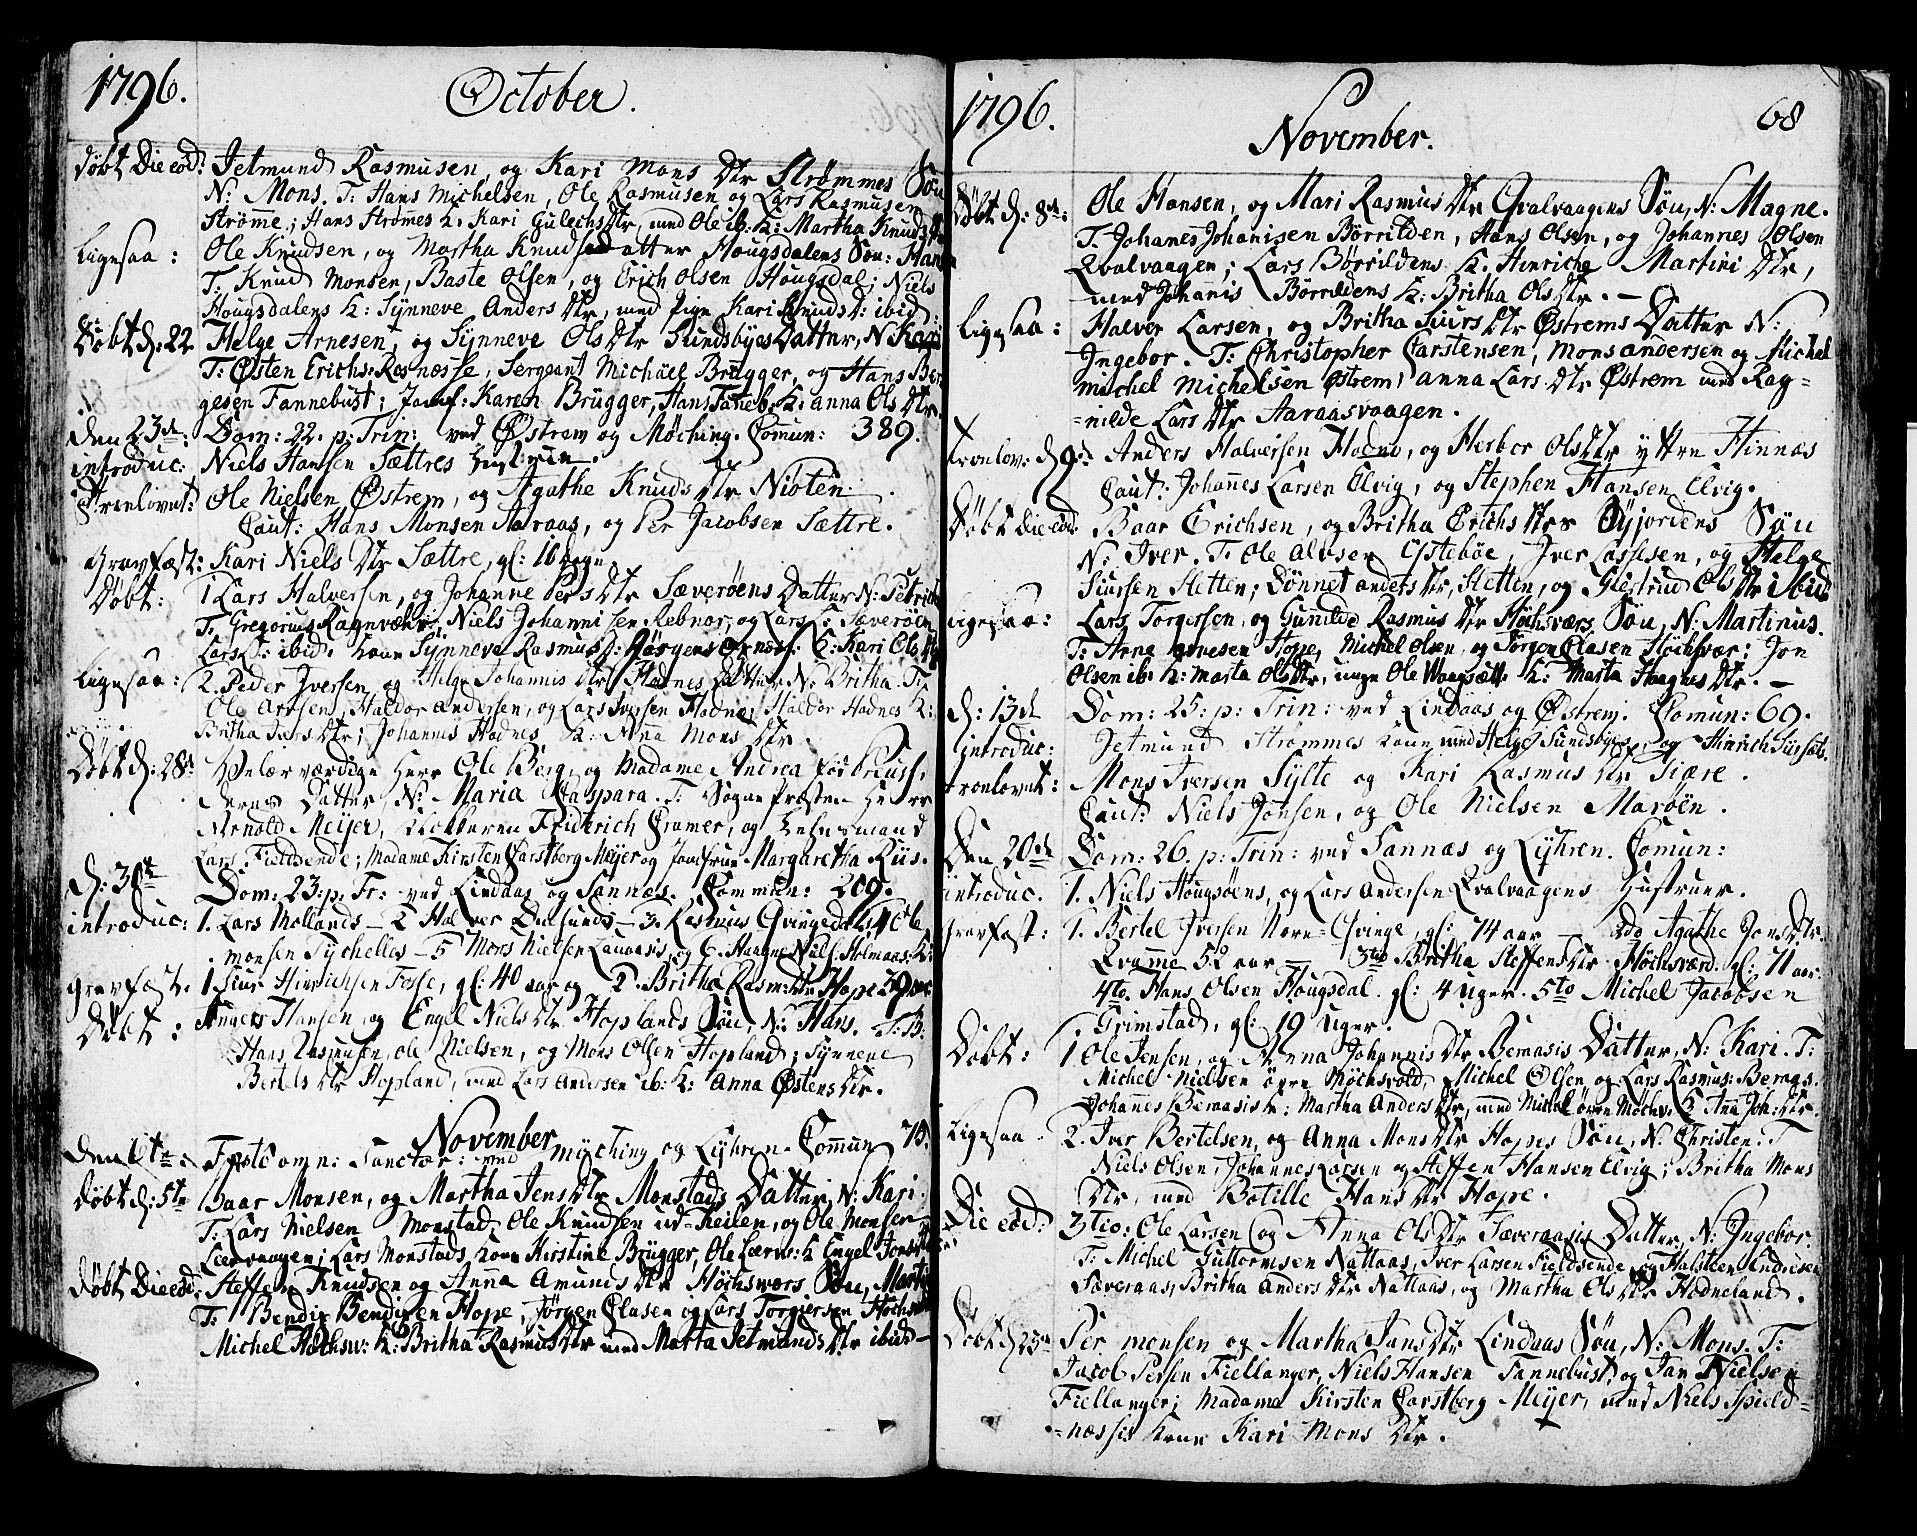 1796. October.
Døbt Die eod: Jetmund Rasmusen, og Kari Mons Dtr Strømmes Søn
N: Mons. T: Hans Michelsen, Ole Rasmusen og Lars Rasmusen
Strøme; Hans Strømes K. Kari Gulechs Dtr, med Ole ib: K: Martha Knuds Dtr
Ligesaa: Ole Knudsen, og Martha Knudsdatter Hougsdalens Søn: Hans
T: Knud Monsen, Baste Olsen, og Erich Olsen Hougsdal; Niels
Hougsdalens K: Synneve Anders Dtr, med Pige Kari Knuds D: ibid:
Døbt d: 22. Helge Arnesen, og Synneve Ols Dtr Sundsbyes Datter, N: Kari
T: Østen Erichs: Rosnesse, Sergeant Michael Brügger, og Hans Ber
gesen Fannebust; Jomf: Karen Brügger, Hans Faneb. K: Anna Ols Dtr.
den 23de: Dom: 22. p: Trin: ved Østrem og Møching. Comun: 389.
introduc: Niels Hansen Sættres Hustrue.
Tronlovet: Ole Nielsen Østrem, og Agathe Knuds Dtr Nibten
Caut: Hans Monsen Aaraas, og Per Jacobsen Sættre.
Gravfæst: Kari Niels Dtr Sættre, gl: 16 dage
Døbt: 1 Lars Halversen, og Johanne Pers Dtr Sæverøens Datter N: Petricke
T: Gregorius Ragnvalds: Niels Johannisen Rebnor, og Lars: Sæverøen
Lars D: ibid. Kone Synneva Rasmus D: K: Kari Ols Dtr
Ligesaa: 2. Peder Iversen, og Helge Johannis Dtr Hadnes Datter N: Britha. T:
Ole Arnsen, Haldor Andersen, og Lars Iversen Hodne; Haldor Hodnes K:
Britha Iuers Dtr; Johannis Hodnes K: Anna Mons Dtr.
Døbt d: 28de Velærværdige Herr Ole Berg, og Madame Andrea fød Preuss,
deres Datter, N: Maria Caspara. T: Sogne Præsten Herr
Arnold Meyer, Klokkeren Friderich Cramer, og Lehnsmand
Lars Fieldsende; Madame Kirsten Carstberg Meyer og Jomfrue Margaretha Riis.
d: 30te Dom: 23: p: Tr: ved Lindaas og Sannæs. Commun: 209.
introduc: 1. Lars Mollands - 2 Halver - 3. Rasmus Qvingedals, 4 Ole
Monsen Tychelles - 5 Mons Nielsen og 6. Haagne Niels: Holmaas: K:
gravfæst. 1 Siur Hinrichsen Fosse, gl: 40 aar og 2. Britha Rasm: Dtr Hope 39 aar
Døbt: Angers Hansen, og Engel Niels Dtr Hoplands Søn, N: Hans. T: B:
Hans Rasmusen, Ole Nielsen, og Mons Olsen Hopland; Synneve
Bertels Dtr Hopland, med Lars Andersen ib: K: Anna Østens Dtr.
November
Den 1te: Festo omn: Sanctor: ved Myching og Lyhren. Comun 73.
Døbt d: 5te Baar Monsen, og Martha Jens Dtr Monstads Datter, N: Kari.
T: Lars Nielsen Monstad, Ole Knudsen ud=Keilen, og Ole Monsen
Leervaagen; Lars Monstads Kone Kirstine Brügger, Ole Lærv: K Engel Jons Dtr
Døbt Die eod. Steffen Knudsen og Anna Amunds Dtr Høchsværs Søn, Marti
T: Bendix Bendixen Hope, Jørgen Clasen og Lars Torgiersen Høchsv
Michel Høchsv: K: Britha Rasmus Dtr med Marta Jetmunds Dtr ibid -
1796. November. 68
Døbt d: 8de: Ole Hansen, og Mari Rasmus Dtr Qvalvaagens Søn, N: Magne.
T: Johanes Johanisen Børrilden, Hans Olsen, og Johannes Olsen
Qvalvaagen; Lars Børrildens K. Hinriche Martini Dtr,
med Johanis Børrildens K: Britha Ols Dtr. -
Ligesaa: Halver Larsen, og Britha Siurs Dtr Østrems Datter N:
Ingebor. T: Christopher Carstensen, Mons Andersen og Michel
Michel Michelsen Østrem; Anna Lars Dtr Østrem med Rag=
=nilde Lars Dtr Aaraasvaagen.
Tronlov: d 9de: Anders Halversen Hodne, og Herbor Ols Dtr yttre Hinnæs
Caut: Johannes Larsen Elvig, og Stephen Hansen Elvig.
Døbt Die eod. Baar Erichsen, og Britha Erichs Dtr Øyjordens Søn
N: Iver. T: Ole Alvsen Østebøe, Iver Lassesen, og Helge
Siursen Hetten; Dønnet Anders Dtr, Hetten, og Giertrud Ols Dtr ibid
Ligesaa: Lars Torgersen, og Gunilde Rasmus Dtr Høchsværs Søn, N: Martinus.
T: Arne Arnesen Hope, Michel Olsen, og Jørgen Clasen Høchsvær: Jon
Olsen ib: K: Marta Ols Dtr, unge Ole Waagsætt: K: Marta Haagnes Dtr. -
d: 13de Dom: 25: p: Trin: ved Lindaas og Østrem. Comun: 69.
introduc: Jetmund Strømmes Kone med Helge Sundsbyes, og Hinrich
Tronlovet: Mons Iversen Sylte og Kari Rasmus Dtr Siære.
Caut: Niels Jonsen, og Ole Nielsen Marøen.
Den 20de Dom: 26. p: Trin: ved Sannæs og Lyhren. Comun:
introduc. 1. Niels Hougsøens, og Lars Andersen Qvalvaagens Hustruer.
gravfæst: 1. Bertel Iversen Nore=Qvinge, gl: 74 aar - 2do Agathe Jons Dtr.
Qvamme 52 aar - 3tio Britha Steffens Dtr Høchsværd. gl: 71 aar.
4to. Hans Olsen Hougsdal. gl: 4 uger. 5to Michel Jacobsen
Grimstad, gl: 19 uger.
Døbt: 1 Ole Jensen, og Anna Johannis Dtr Bernasis Datter, N: Kari. T:
Michel Nielsen øvre Møchsvold, Michel Olsen og Lars Rasmus: Beraas.
Johannes Beraasis K: Martha Anders Dtr, med Michel øvre Møchsv: K Ann Joh: Dtr.
Ligesaa. 2. Iver Bertelsen, og Anna Mons Dtr Hopes Søn, N: Christen: T
Niels Olsen, Johannes Larsen og Steffen Hansen Elvig; Britha Mons
Dtr, med Botille Hans Dtr Hope.
Die eod: 3tio: Ole Larsen og Anna Ols Dtr Sæveraasis Datter, N: Ingebor.
T: Michel Guttormsen Nattaas, Iver Larsen Fieldsende, og Halsteen Andersen
Sæveraas, Britha Anders Dtr Nattaas, og Martha Ols Dtr Hodneland.
Døbt d 23de Per Monsen og Martha Jans Dtr Lindaas Søn, N: Mons. T:
Jacob Persen Fiellanger, Niels Hansen Fannebust, og Jan Nielsen
Fiellanger; Madame Kirsten Carstberg Meyer, med Niels Spield=
=næssis Kone Kari Mons Dtr.